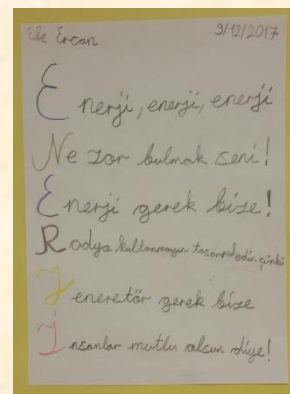 Efe Ercan 9/12/2017
Enerji, enerji, enerji
Ne zor bulmak seni!
Enerji gerek bize!
Radyo kullanmayın tasarruf edin çünkü
Jeneretör gerek bize
İnsanlar mutlu olsun diye!